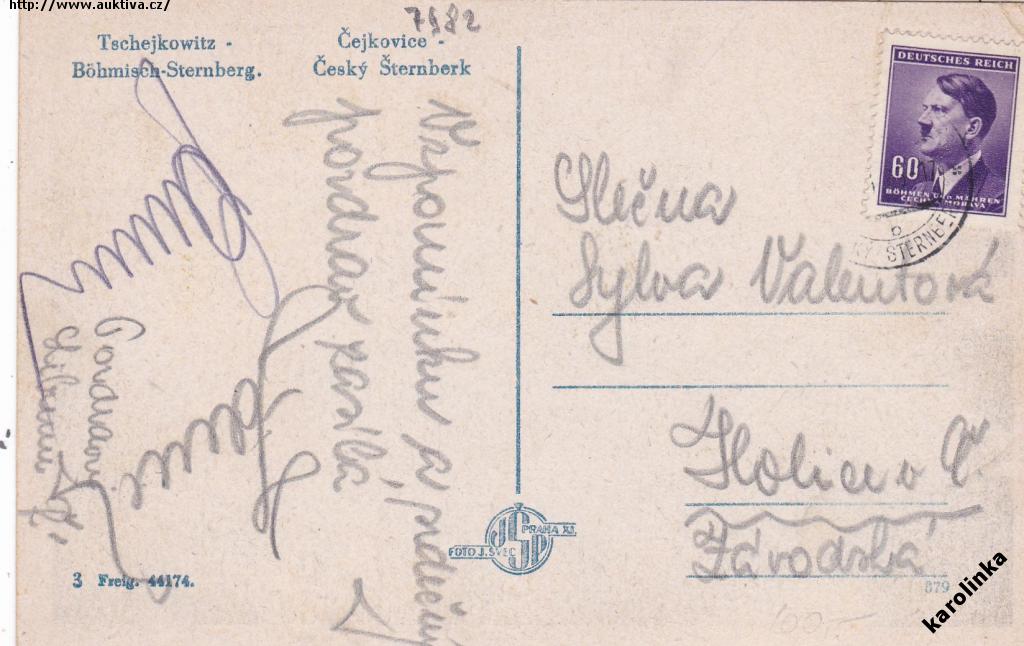 http://www.auktiva.cz/
7982
Tschejkowitz -
Böhmisch-Sternberg.
Čejkovice -
Český Šternberk
Vzpomínku a srdečný
pozdrav zasílá
DEUTSCHES REICH
60
BÖHMEN UND MÄHREN
ČECHY A MORAVA
STERNBE
b
Slečna
Sylva Valentová
Holice v Č.
Závodská
FOTO J. ŠVEC
PRAHA XI.
JŠP
3 Freig. 44174.
879
100-
karolinka